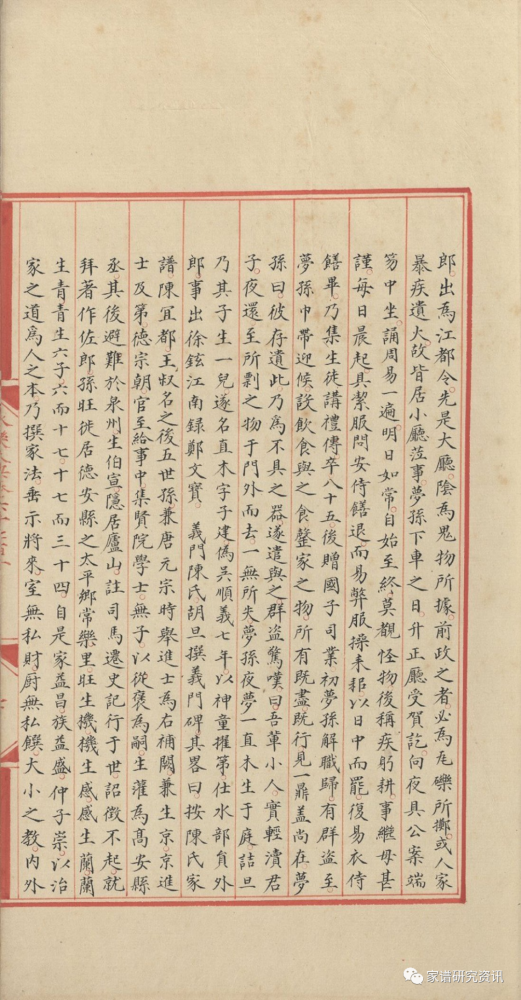 郎出為江都令先是大廳陰為鬼物所據前政之者必為瓦礫所擲或人家
暴疾遺火故皆居小廳蒞事夢孫下車之日升正廳受賀訖向夜具公案端
笏中坐誦周易一遍明日如常自始至終莫覩怪物後稱疾躬耕事繼母甚
謹每日晨起具潔服問安侍饍退而易弊服操耒耜以日中而罷復易衣侍
饍畢乃集生徒講禮傳卒八十五後贈國子司業初夢孫解職歸有群盜至
夢孫巾帶迎候設飲食與之食罄家之物所有既盡既行見一鼎盖尚在夢
孫曰彼存遺此乃為不具之器遂遣與之群盜驚嘆曰吾輩小人實輕瀆君
子夜還至所剽之物于門外而去一無所失夢孫夜夢一直木生于庭詰旦
乃其子生一兒遂名直木字子建偽吳順義七年以神童擢第仕水部員外
郎事出徐鉉江南錄鄭文寶　義門陳氏胡旦撰義門碑其畧曰按陳氏家
譜陳宜都王叔名之後五世孫兼唐元宗時舉進士為右補闕兼生京京進
士及第德宗朝官至給事中集賢院學士無子以從褒為嗣生灌為高安縣
丞其後避難於泉州生伯宣隱居廬山註司馬遷史記行于世詔徵不起就
拜著作佐郎孫旺徙居德安縣之太平鄉常樂里旺生機機生感感生蘭蘭
生青青生六子六而十七十七而三十四自是家益昌族益盛仲子崇以治
家之道為人之本乃撰家法垂示將來室無私財厨無私饌大小之教內外
家谱研究资讯